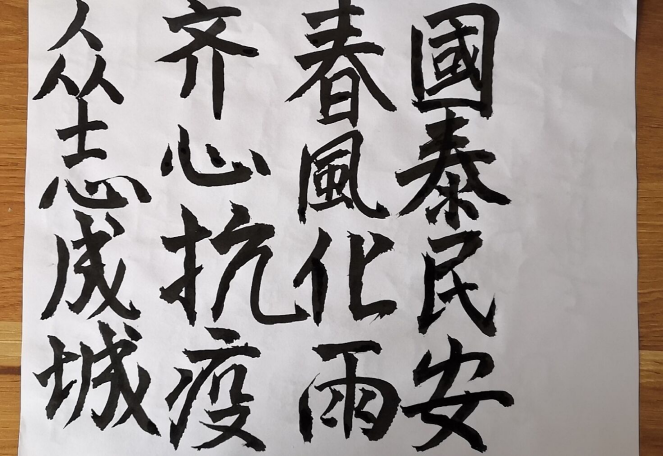 國泰民安
春風化雨
齐心抗疫
众志成城